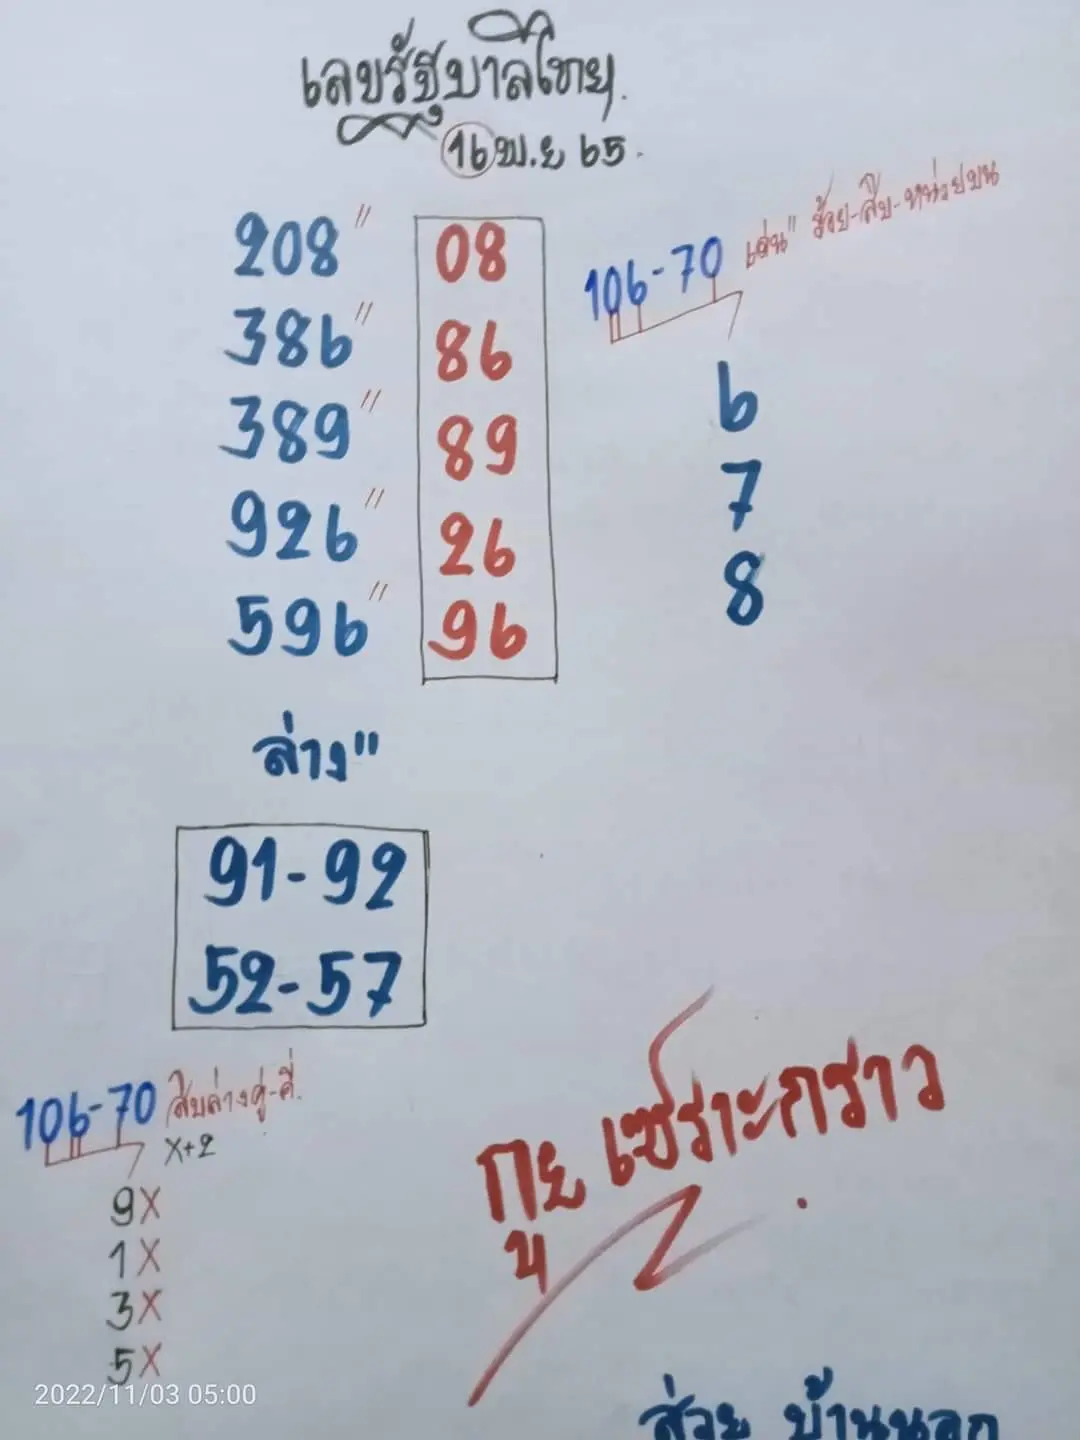 เลขรัฐบาลไทย.
16 พ.ย 65.
208" 08
386" 86
389" 89
926" 26
596" 96
106-70 เด่น" ร้อย-สิบ-หน่วยบน
6
7
8
ล่าง"
91-92
52-57
106-70 สิบล่างคู่-คี่.
x+2
9X
1X
3X
5X
2022/11/03 05:00
เซราะกราว
ส่วย บ้านนอก